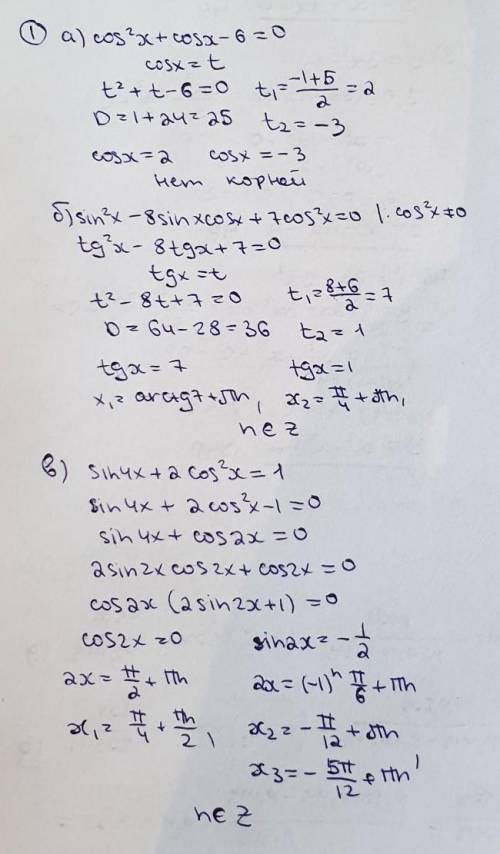 ① а) cos²x + cosx - 6 = 0
cosx = t
t² + t - 6 = 0 t₁ = (-1+5)/2 = 2
D = 1 + 24 = 25 t₂ = -3
cosx = 2 cosx = -3
нет корней
б) sin²x - 8sinxcosx + 7cos²x = 0 |: cos²x ≠ 0
tg²x - 8tgx + 7 = 0
tgx = t
t² - 8t + 7 = 0 t₁ = (8+6)/2 = 7
D = 64 - 28 = 36 t₂ = 1
tgx = 7 tgx = 1
x₁ = arctg7 + πn, x₂ = π/4 + πn,
n ∈ Z
в) sin4x + 2cos²x = 1
sin4x + 2cos²x - 1 = 0
sin4x + cos2x = 0
2sin2x cos2x + cos2x = 0
cos2x (2sin2x + 1) = 0
cos2x = 0 sin2x = -1/2
2x = π/2 + πn 2x = (-1)ⁿ π/6 + πn
x₁ = π/4 + πn/2, x₂ = -π/12 + πn
x₃ = -5π/12 + πn,
n ∈ Z